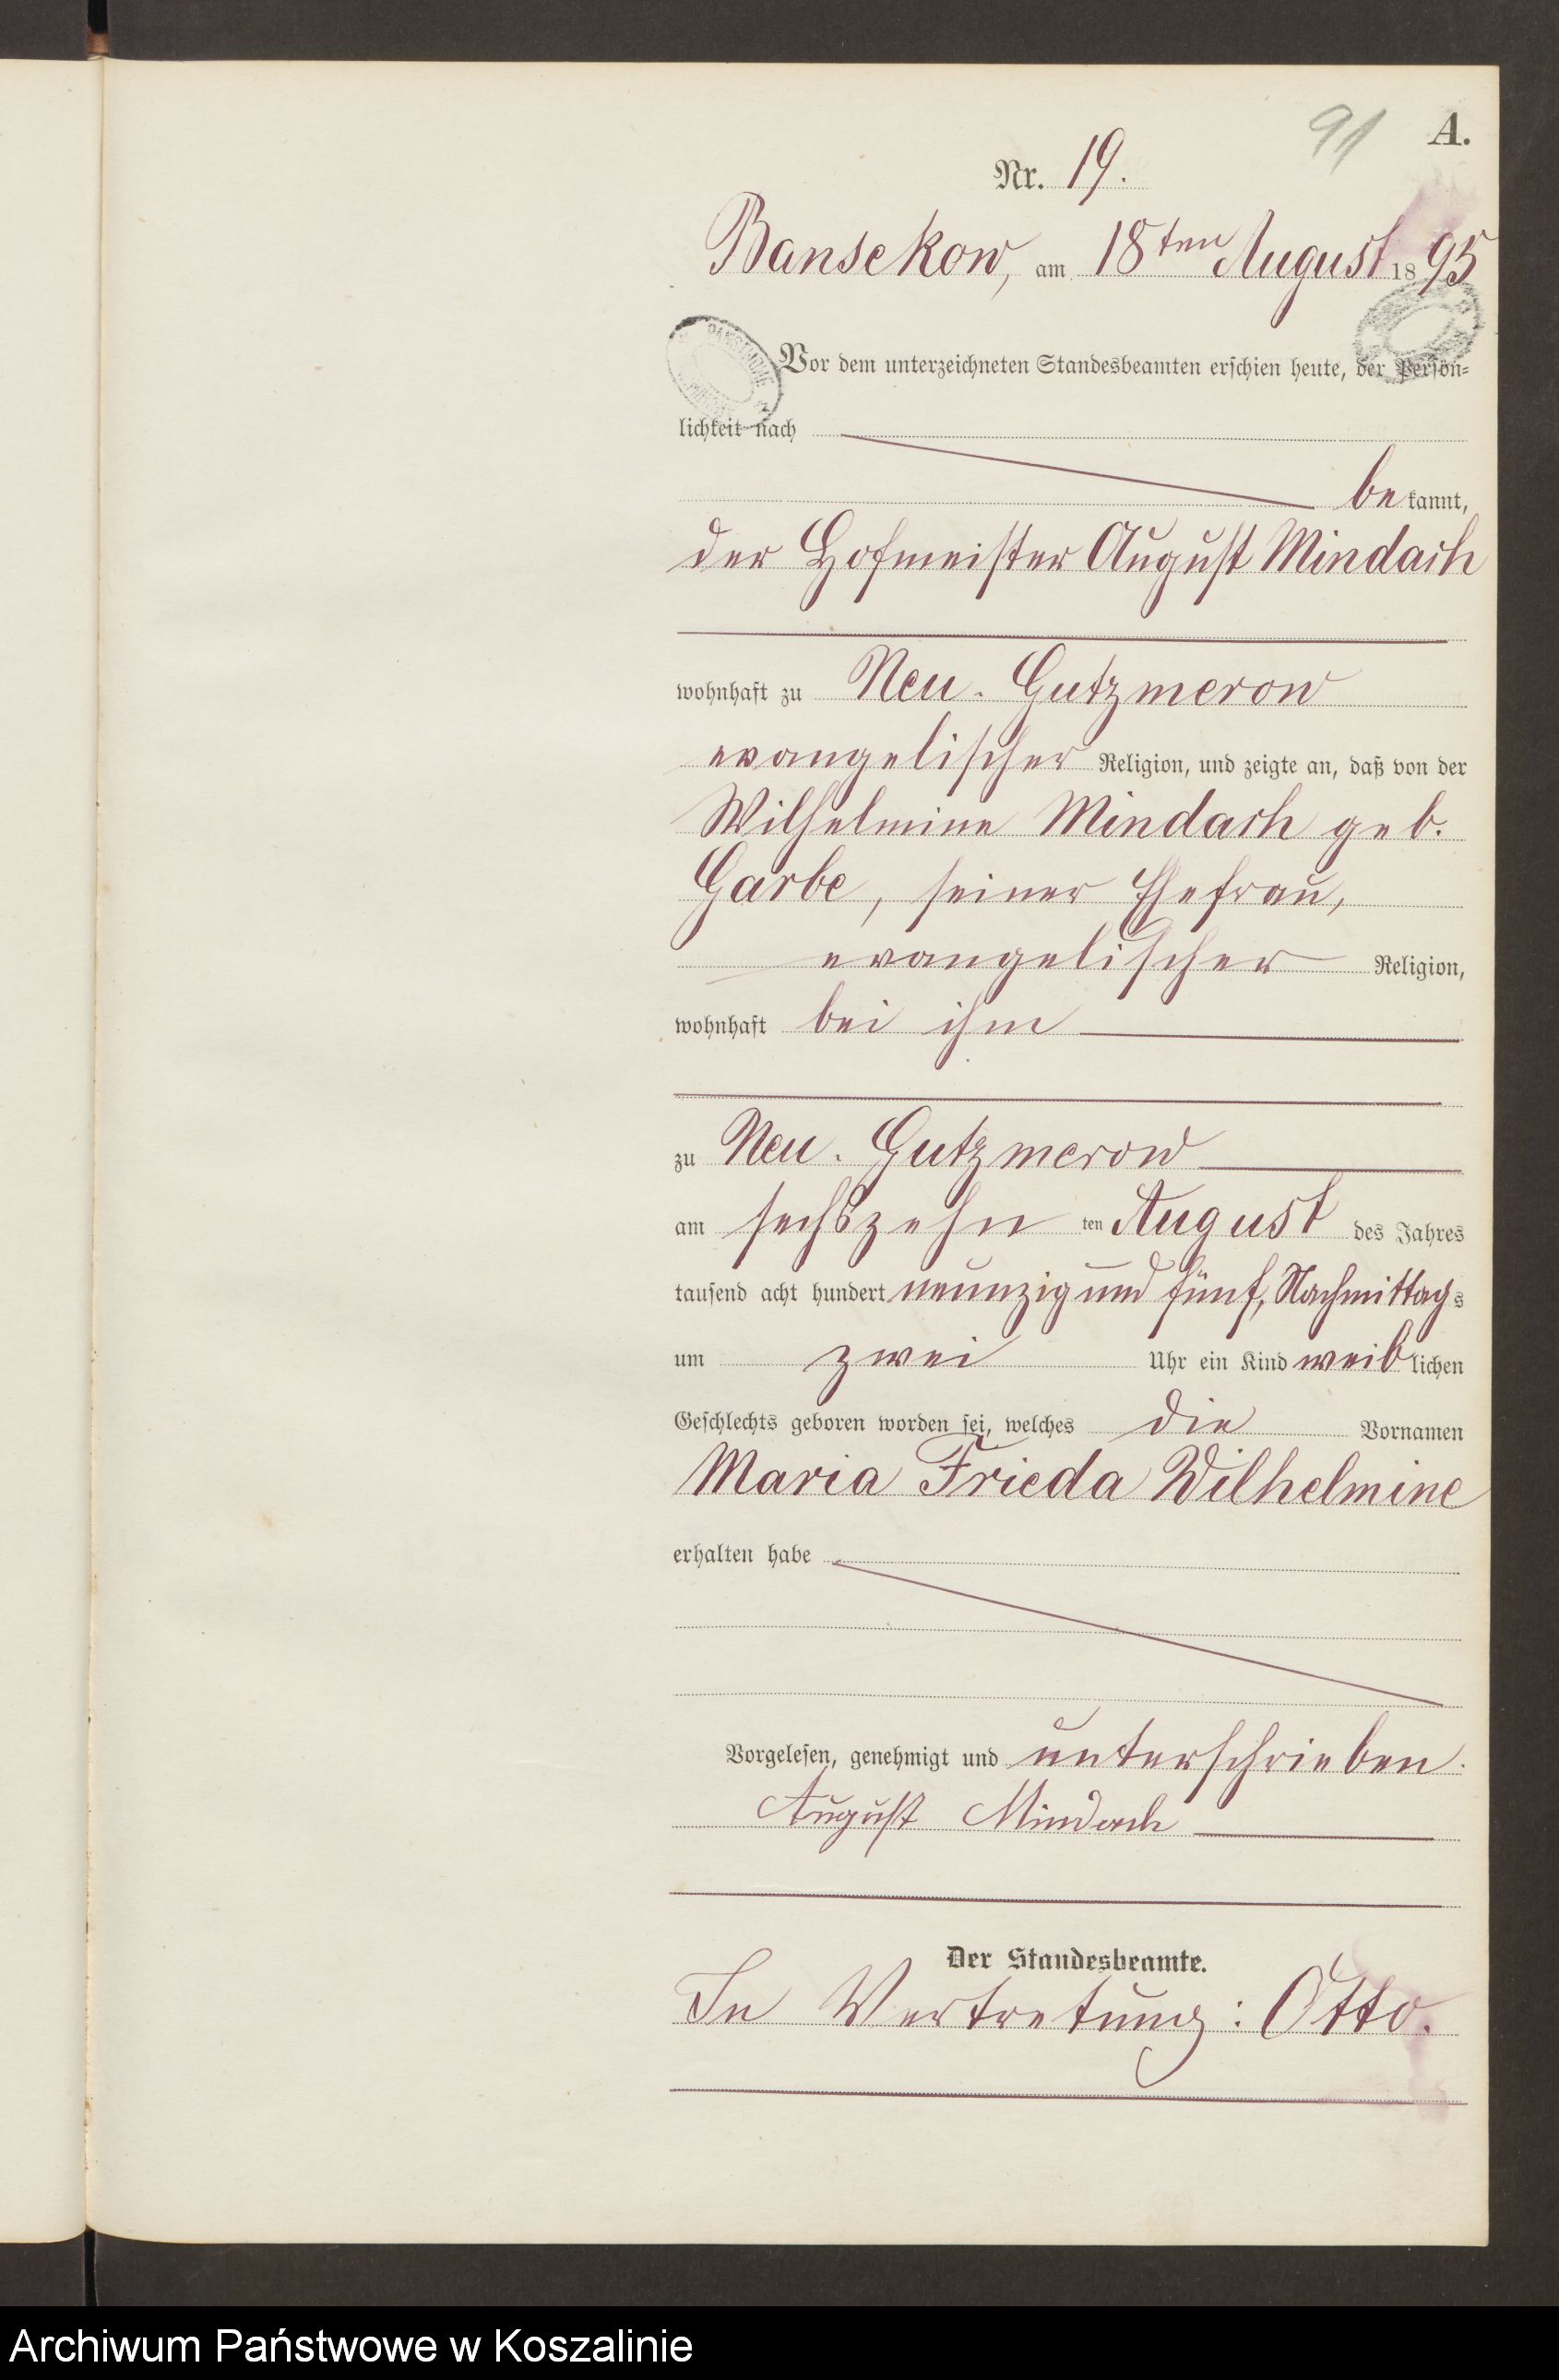 91 A.
Nr. 19.
Bansekow, am 18ten August 1895
Vor dem unterzeichneten Standesbeamten erschien heute, der Persön-
lichkeit nach
bekannt,
der Hofmeister August Mindach
wohnhaft zu Neu-Gutzmerow
evangelischer Religion, und zeigte an, daß von der
Wilhelmine Mindach geb.
Garbe, seiner Ehefrau,
evangelischer Religion,
wohnhaft bei ihm
zu Neu-Gutzmerow
am sechszehn ten August des Jahres
tausend acht hundert neunzig und fünf, Nachmittags
um zwei Uhr ein Kind weiblichen
Geschlechts geboren worden sei, welches die Vornamen
Maria Frieda Wilhelmine
erhalten habe
Vorgelesen, genehmigt und unterschrieben.
August Mindach
Der Standesbeamte.
In Vertretung: Otto.
Archiwum Państwowe w Koszalinie